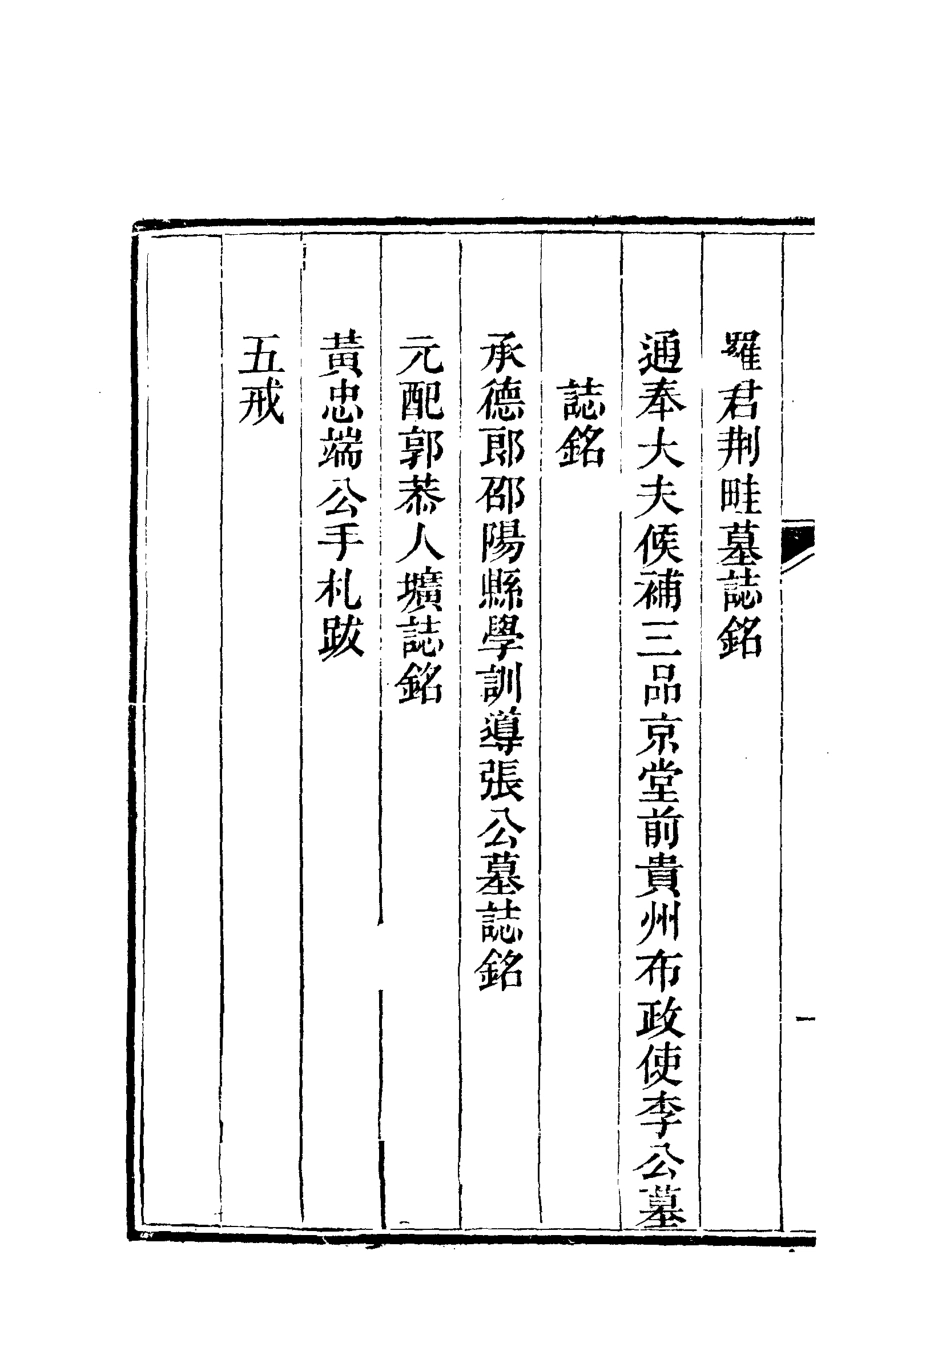 羅君荆畦墓誌銘
通奉大夫候補三品京堂前貴州布政使李公墓
誌銘
承德郎邵陽縣學訓導張公墓誌銘
元配郭恭人壙誌銘
黃忠端公手札跋
五戒
一